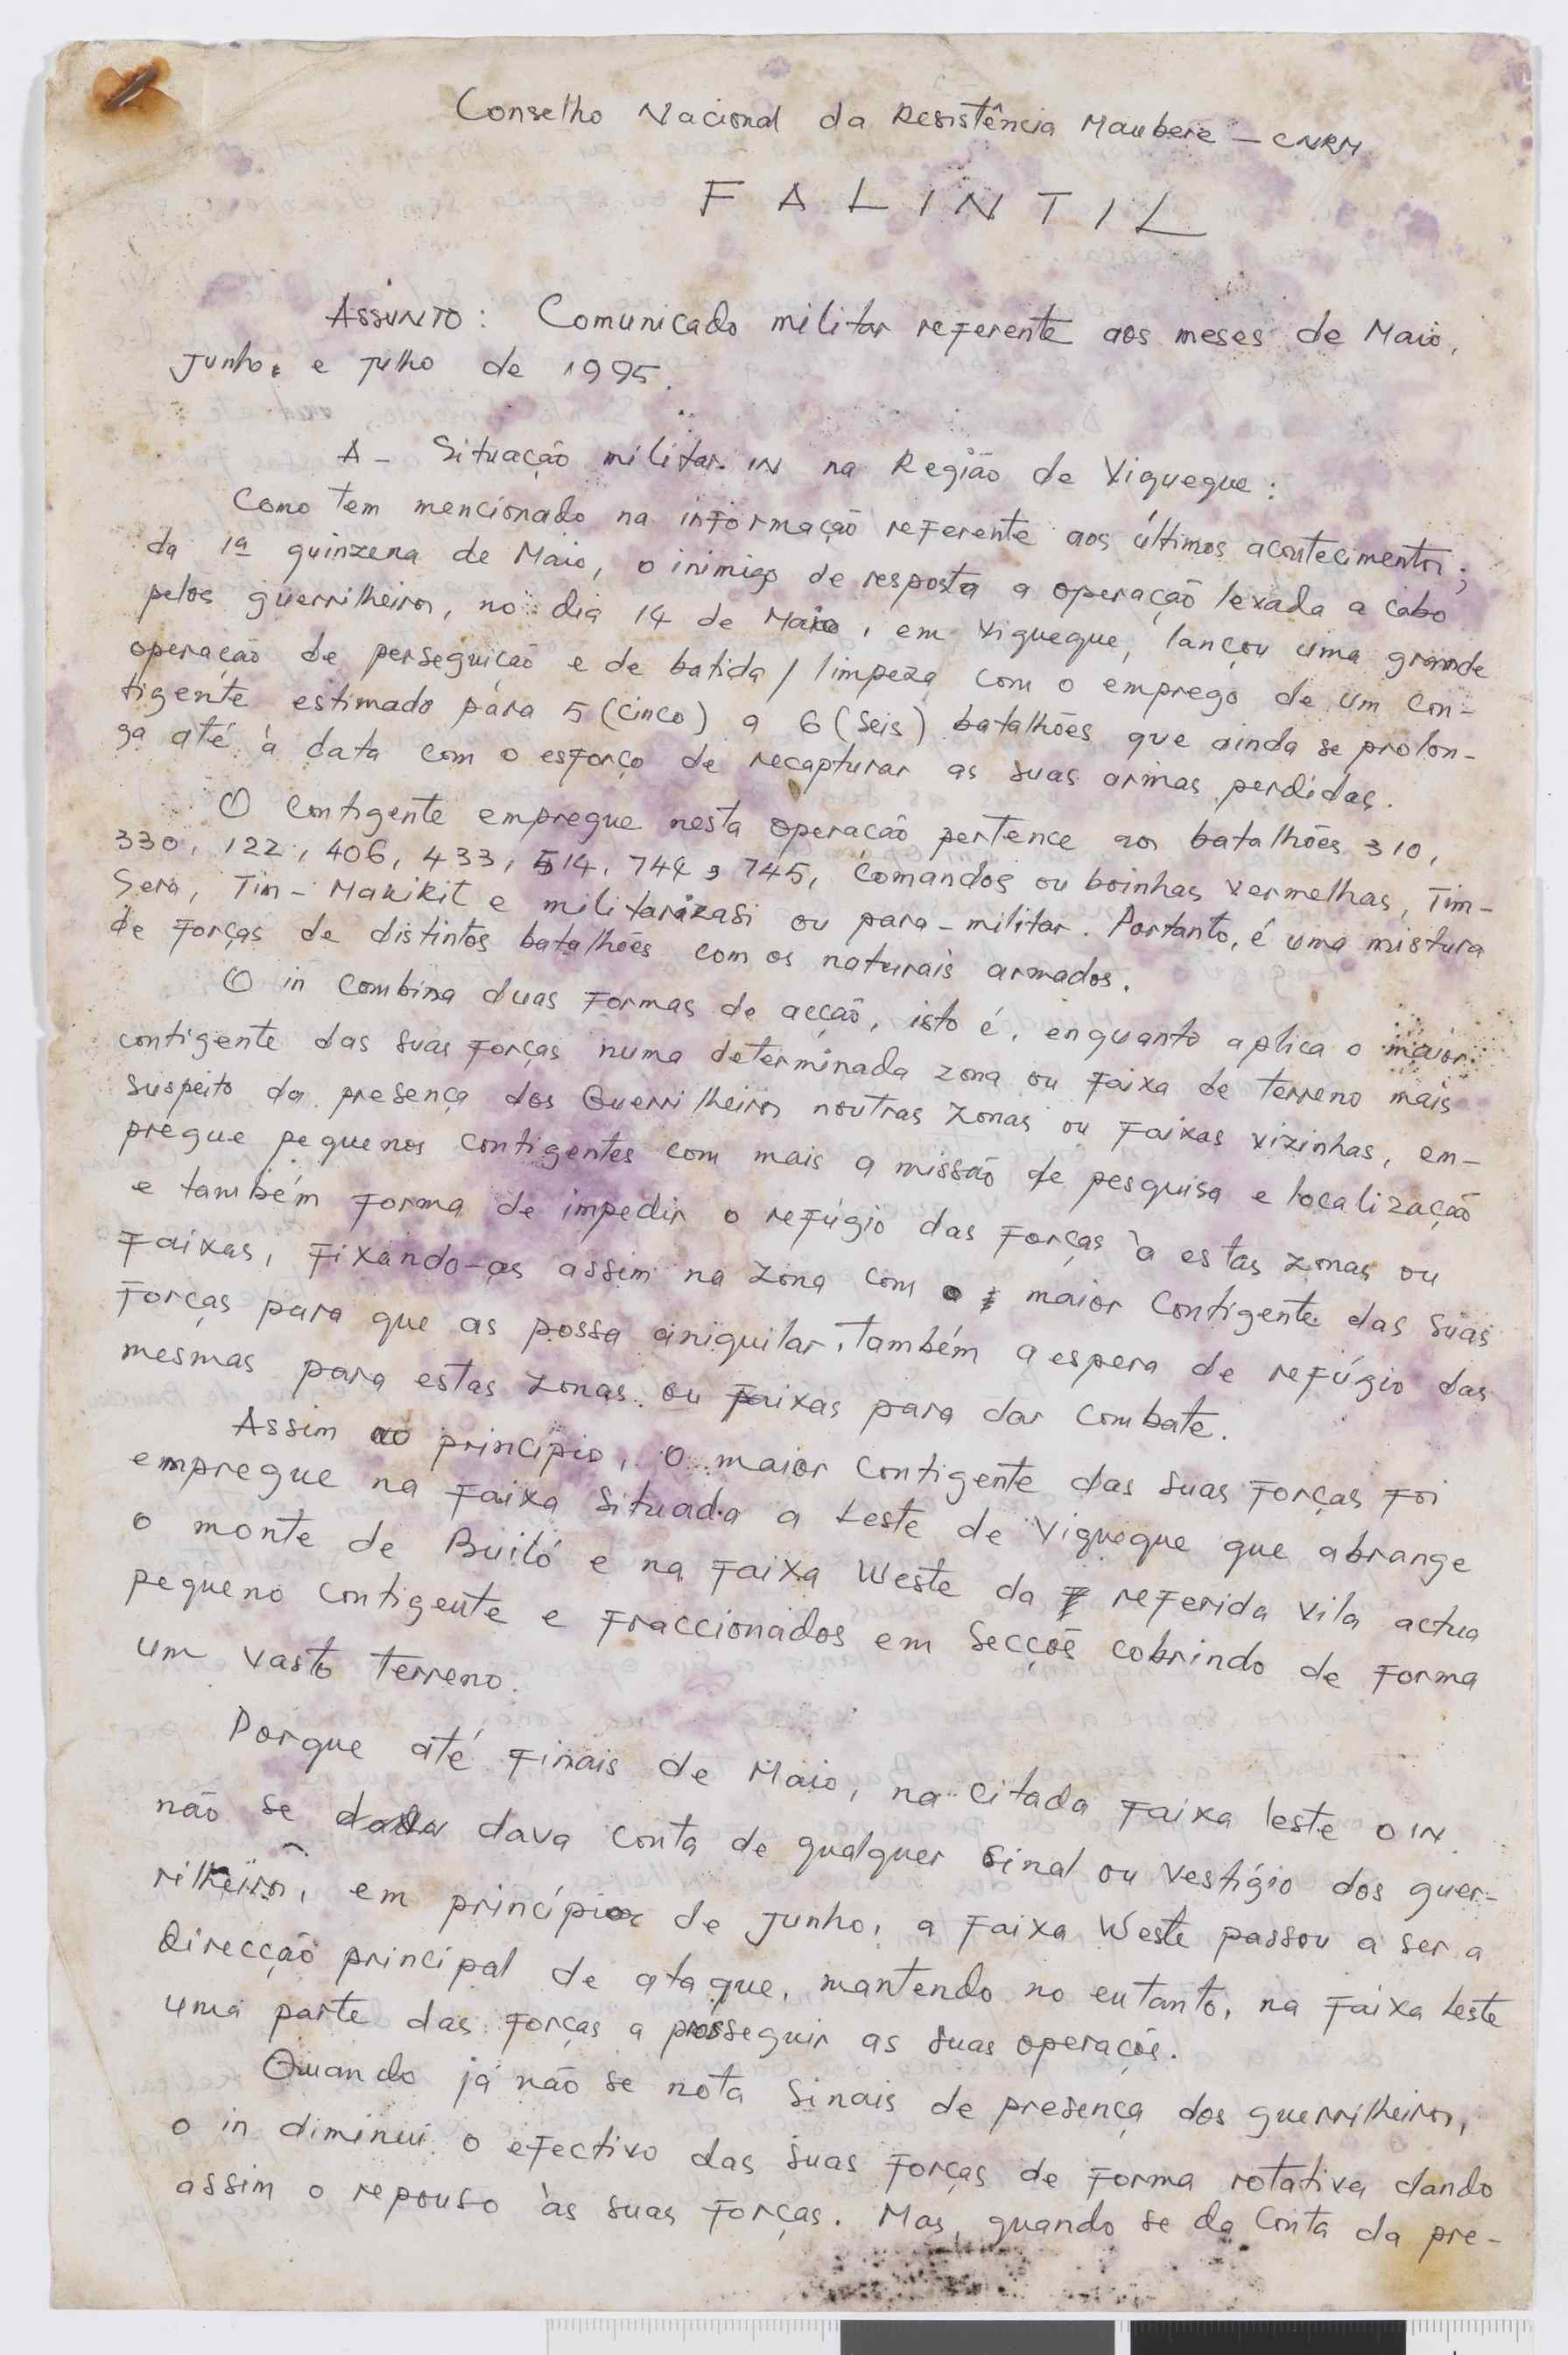 Conselho Nacional da Resistência Maubere – CNRM
FALINTIL
ASSUNTO: Comunicado militar referente aos meses de Maio,
Junho e Julho de 1995.
A – Situação militar IN na Região de Viqueque:
Como tem mencionado na informação referente aos últimos acontecimentos;
da 1ª quinzena de Maio, o inimigo de resposta a operação levada a cabo
pelos guerrilheiros, no dia 14 de Maio, em Viqueque, lançou uma grande
operação de perseguição e de batida / limpeza com o emprego de um con-
tigente estimado para 5 (cinco) a 6 (seis) batalhões que ainda se prolon-
ga até à data com o esforço de recapturar as suas armas perdidas.
O contigente empregue nesta operação pertence aos batalhões 310,
330, 122, 406, 433, 514, 744, 745, Comandos ou boinhas vermelhas, Tim-
Sera, Tim – Makikit e militarizasi ou para-militar. Portanto, é uma mistura
de forças de distintos batalhões com os naturais armados.
O in combina duas formas de acção, isto é, enquanto aplica o maior
contigente das suas forças numa determinada zona ou faixa de terreno mais
suspeito da presença dos Guerrilheiros noutras zonas ou faixas vizinhas, em-
pregue pequenos contigentes com mais a missão de pesquisa e localização
e também forma de impedir o refúgio das forças à estas zonas ou
faixas, fixando-as assim na zona com o maior contigente das suas
forças para que as possa aniquilar, também a espera de refúgio das
mesmas para estas zonas ou faixas para dar combate.
Assim ao princípio, o maior contigente das suas forças foi
empregue na faixa situada a Leste de Viqueque que abrange
o monte de Builó e na faixa Weste da referida vila actua
pequeno contigente e fraccionados em secções cobrindo de forma
um vasto terreno.
Porque até finais de Maio, na citada faixa leste o IN
não se dava conta de qualquer sinal ou vestígio dos guer-
rilheiros, em princípios de Junho, a faixa Weste passou a ser a
direcção principal de ataque, mantendo no entanto, na faixa Leste
uma parte das forças a prosseguir as suas operações.
Quando já não se nota sinais de presença dos guerrilheiros,
o in diminui o efectivo das suas forças de forma rotativa dando
assim o repouso às suas forças. Mas, quando se da conta da pre-